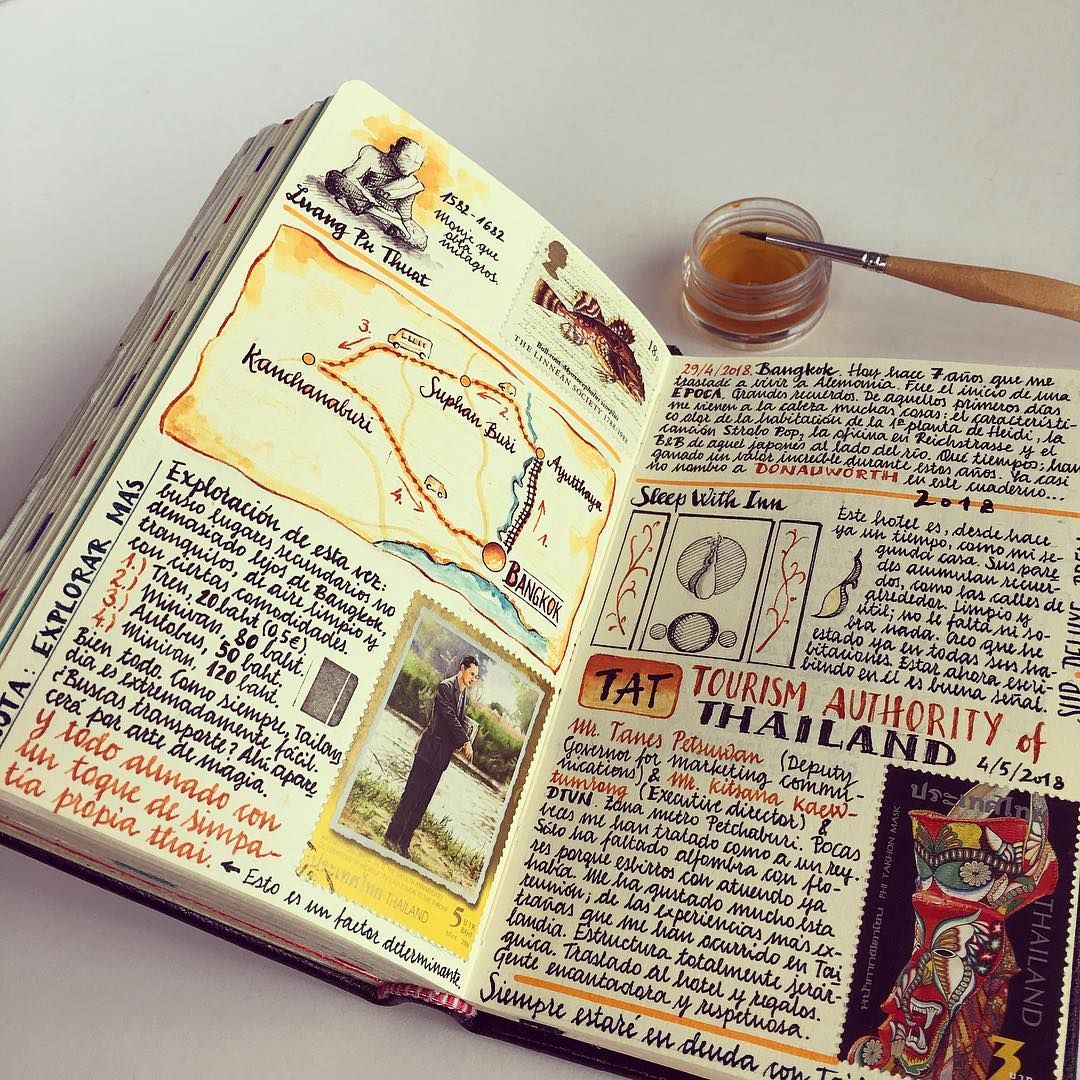 Luang Pu Thuat
1582-1682
Monje que
obra
milagros.
18p
THE LINNEAN SOCIETY 1788·1988
3.
Kanchanaburi
Suphan Buri
2.
Ayutthaya
4.
1.
BANGKOK
NOTA: EXPLORAR MÁS
Exploración de esta vez:
busco lugares secundarios no
demasiado lejos de Bangkok,
tranquilos, de aire limpio y
con ciertas comodidades.
1.) Tren, 20 baht (0,5€).
2.) Minivan, 80 baht.
3.) Autobus, 50 baht.
4.) Minivan, 120 baht.
Bien todo. Como siempre, Tailan
dia es extremadamente fácil.
¿Buscas transporte? Ahi apare
cerá por arte de magia.
y todo aliñado con
un toque de simpa-
tía propia thai.
← Esto es un factor determinante
THAILAND
5
29/4/2018. Bangkok. Hoy hace 7 años que me
trasladé a vivir a Alemania. Fue el inicio de una
EPOCA. Grandes recuerdos. De aquellos primeros días
me vienen a la cabeza muchas cosas: el característi-
co olor de la habitación de la 1ª planta de Heidi, la
canción Strobo Pop, la oficina en Reichstrasse y el
B&B de aquel japones al lado del río. Qué tiempos; han
ganado un valor increíble durante estos años. Ya casi
no nombro a DONAUWÖRTH en este cuaderno...
2018
Sleep With Inn
Este hotel es, desde hace
ya un tiempo, como mi se-
gunda casa. Sus pare
des acumulan recuer-
dos, como las calles de
alrededor. Limpio y
útil; no le falta ni so-
bra nada. Creo que he
estado ya en todas sus ha-
bitaciones. Estar ahora escri-
biendo en él es buena señal.
TAT
TOURISM AUTHORITY of
THAILAND
4/5/2018
Mr. Tanes Petsuwan (Deputy
Governor for marketing commu-
nications) & Mr. Kitsana Kaew-
tumrong (Executive director) &
DTUN. Zona metro Petchaburi. Pocas
veces me han tratado como a un rey.
Sólo ha faltado alfombra con flo-
res porque esbirros con atuendo ya
había. Me ha gustado mucho esta
reunión; de las experiencias más ex-
trañas que me han ocurrido en Tai
landia. Estructura totalmente jerár-
quica. Traslado al hotel y regalos.
Gente encantadora y respetuosa.
Siempre estaré en deuda con
ประเทศไทย
PHI TAKHON MASK
THAILAND
3